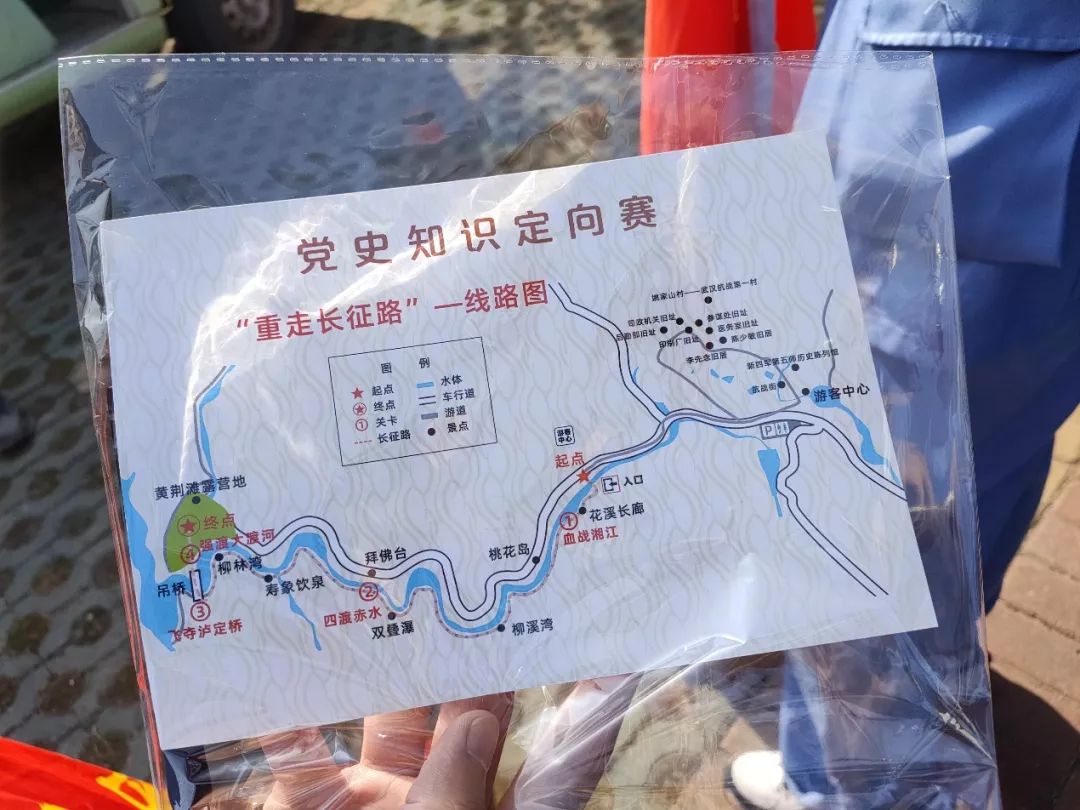 党史知识定向赛
“重走长征路”—线路图
图 例
起点
终点
① 关卡
长征路
水体
车行道
游道
景点
姚家山村——武汉抗战第一村
司政机关旧址
参谋处旧址
后勤部旧址
医务室旧址
印刷厂旧址
陈少敏旧居
李先念旧居
新四军第五师历史陈列馆
抗战街
游客中心
P
游客
中心
起点
入口
花溪长廊
①
血战湘江
桃花岛
柳溪湾
拜佛台
②
四渡赤水
双叠瀑
寿象饮泉
黄荆滩露营地
终点
④ 强渡大渡河
柳林湾
吊桥
③
飞夺泸定桥